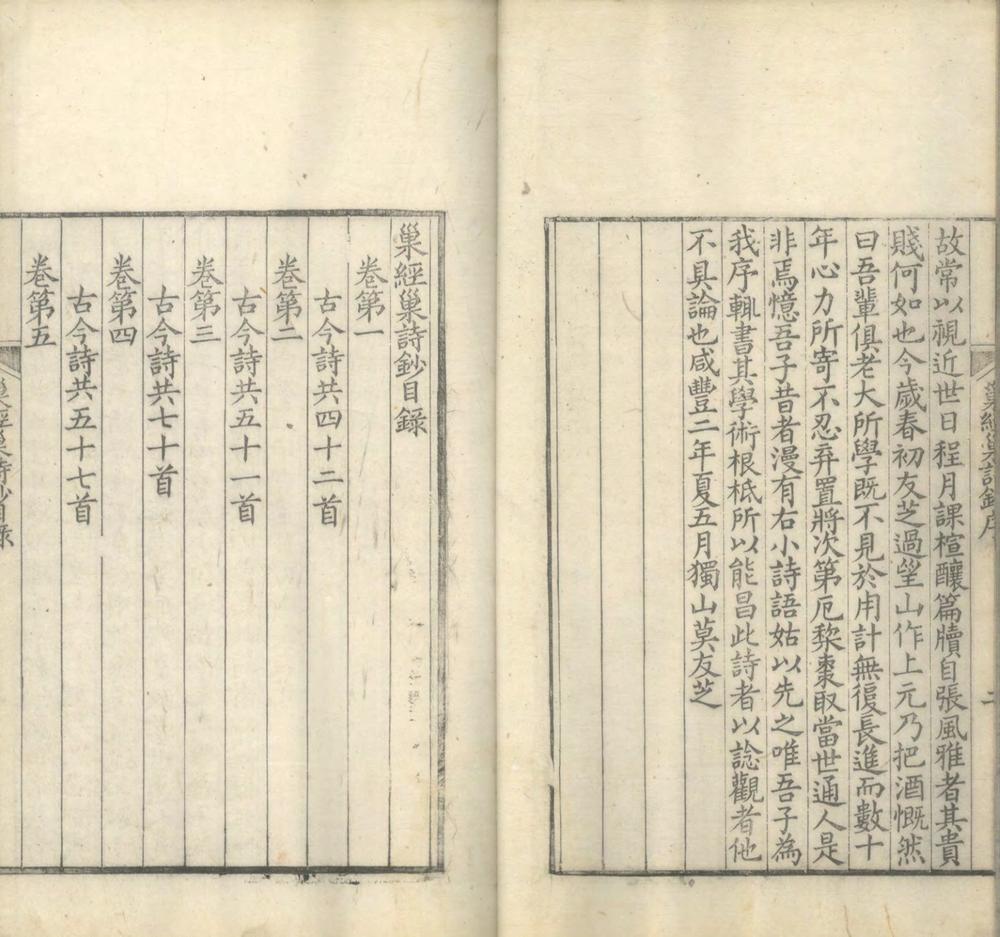 巢經巢詩鈔序
二
故常以視近世日程月課楦釀篇牘自張風雅者其貴
賤何如也今歲春初友芝過望山作上元乃把酒慨然
曰吾輩俱老大所學既不見於用計無復長進而數十
年心力所寄不忍弃置將次第厄棃棗取當世通人是
非焉憶吾子昔者漫有右小詩語姑以先之唯吾子為
我序輒書其學術根柢所以能昌此詩者以諗觀者他
不具論也咸豐二年夏五月獨山莫友芝
巢經巢詩鈔目錄
卷第一
古今詩共四十二首
卷第二
古今詩共五十一首
卷第三
古今詩共七十首
卷第四
古今詩共五十七首
卷第五
巢經巢詩鈔目錄